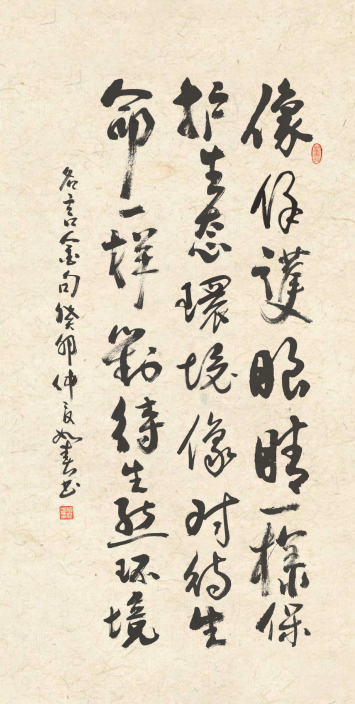 像保護眼睛一樣保
护生态環境像对待生
命一樣對待生態环境
名言金句癸卯仲夏如春书